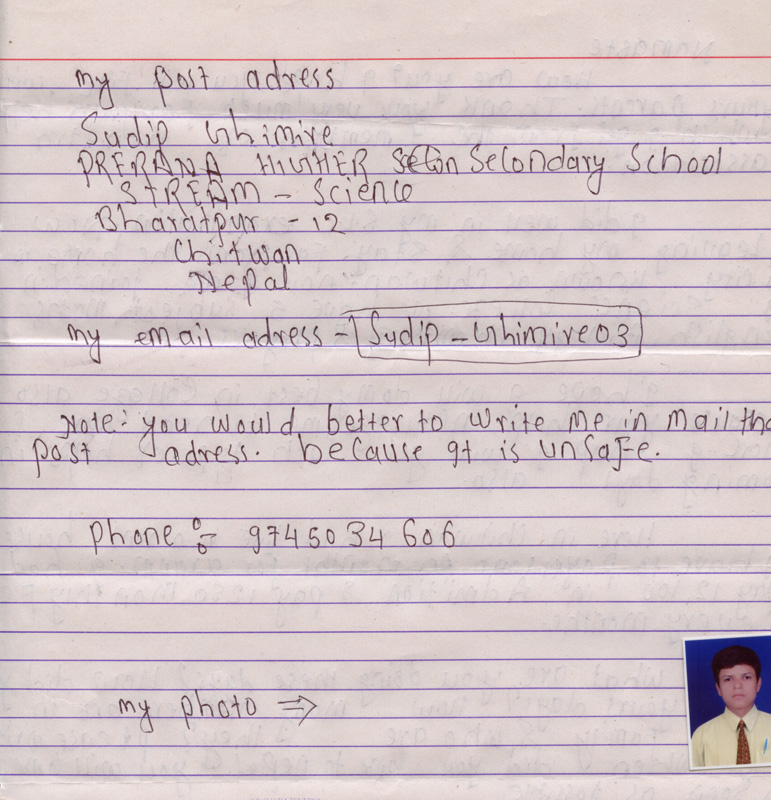 my post adress
Sudip Ghimire
PRERANA HIGHER Secondary School
STREAM - Science
Bharatpur - 12
Chitwan
Nepal
my email adress - Sudip - Ghimire03
Note: you would better to write me in mail tha
post adress. because It is unsafe.
phone :- 9745034606
my photo ⇒